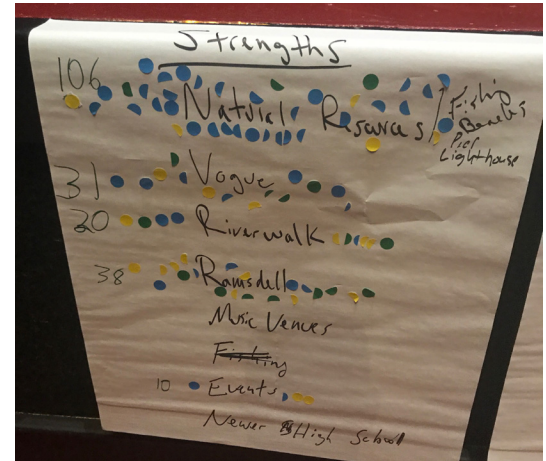 Strengths
106 Natural Resources
Fishing
Beaches
Pier
Lighthouse
31 Vogue
20 Riverwalk
38 Ramsdell
Music Venues
Fishing
10 Events
Newer High School